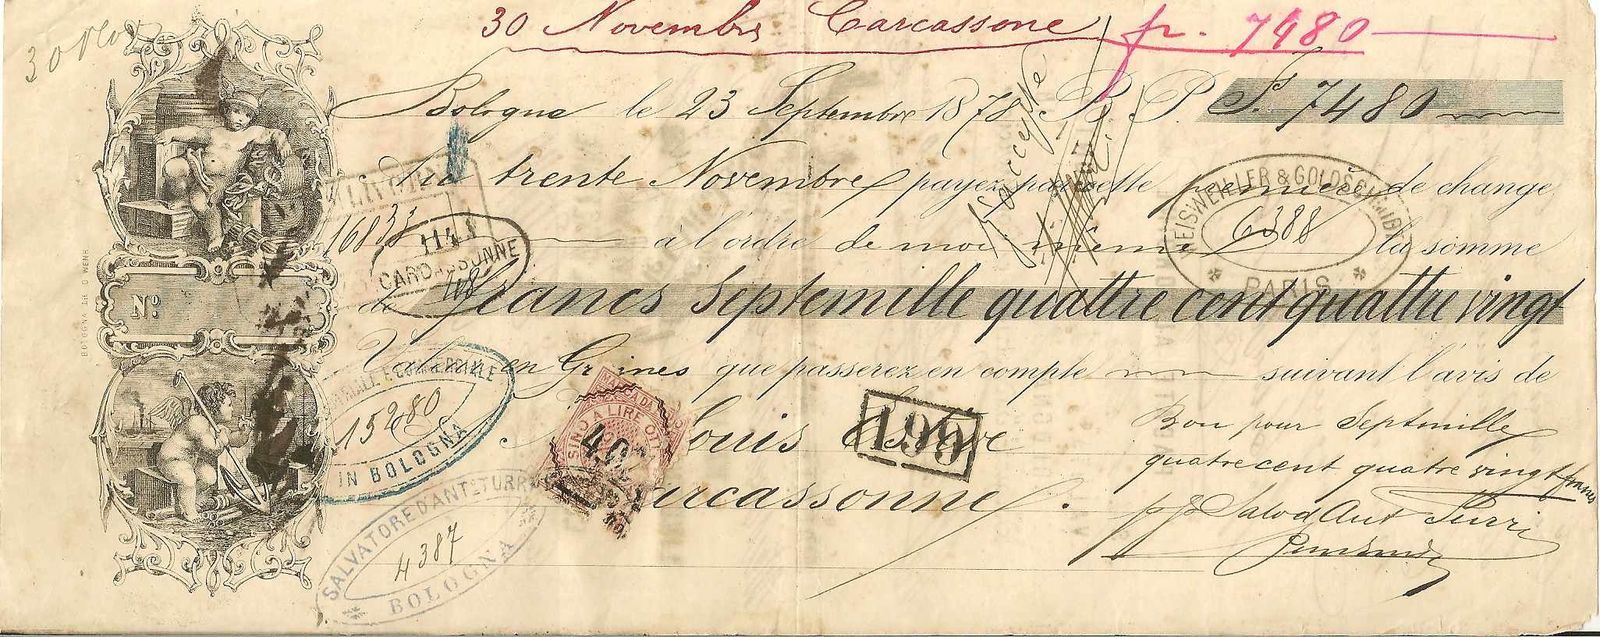 30 Novembre Carcassone fr. 7480
30 Nov
Bologne le 23 Septembre 1878 B. P. F. 7480
trente Novembre payez par cette première de change
J'accepte
16833
114
CARCASSONNE
WEISWEILLER & GOLDSCHMIDT
6388
PARIS
à l'ordre de moi même la somme
de francs septemille quattre cent quattre vingt
Nº
BOLOGNA
Valeur en Graines que passerez en compte suivant l'avis de
15280
IN BOLOGNA
SINO A LIRE
Louis
195
Carcassonne.
Bon pour Septemille
quatre cent quatre vingt francs
pp Salv d'Ant Turri
SALVATORE D'ANT. TURRI
4387
BOLOGNA